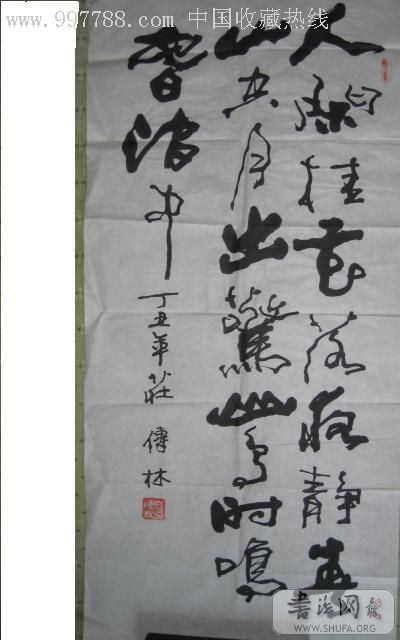 www.997788.com 中国收藏热线
人閒桂花落夜静春
山空月出驚山鸟时鳴
春澗中
丁丑年莊傳林
書法网
WWW.SHUFA.ORG